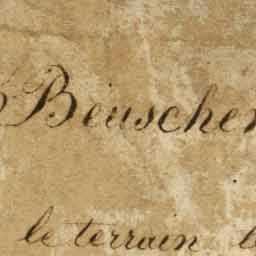 Beuscher
le terrain